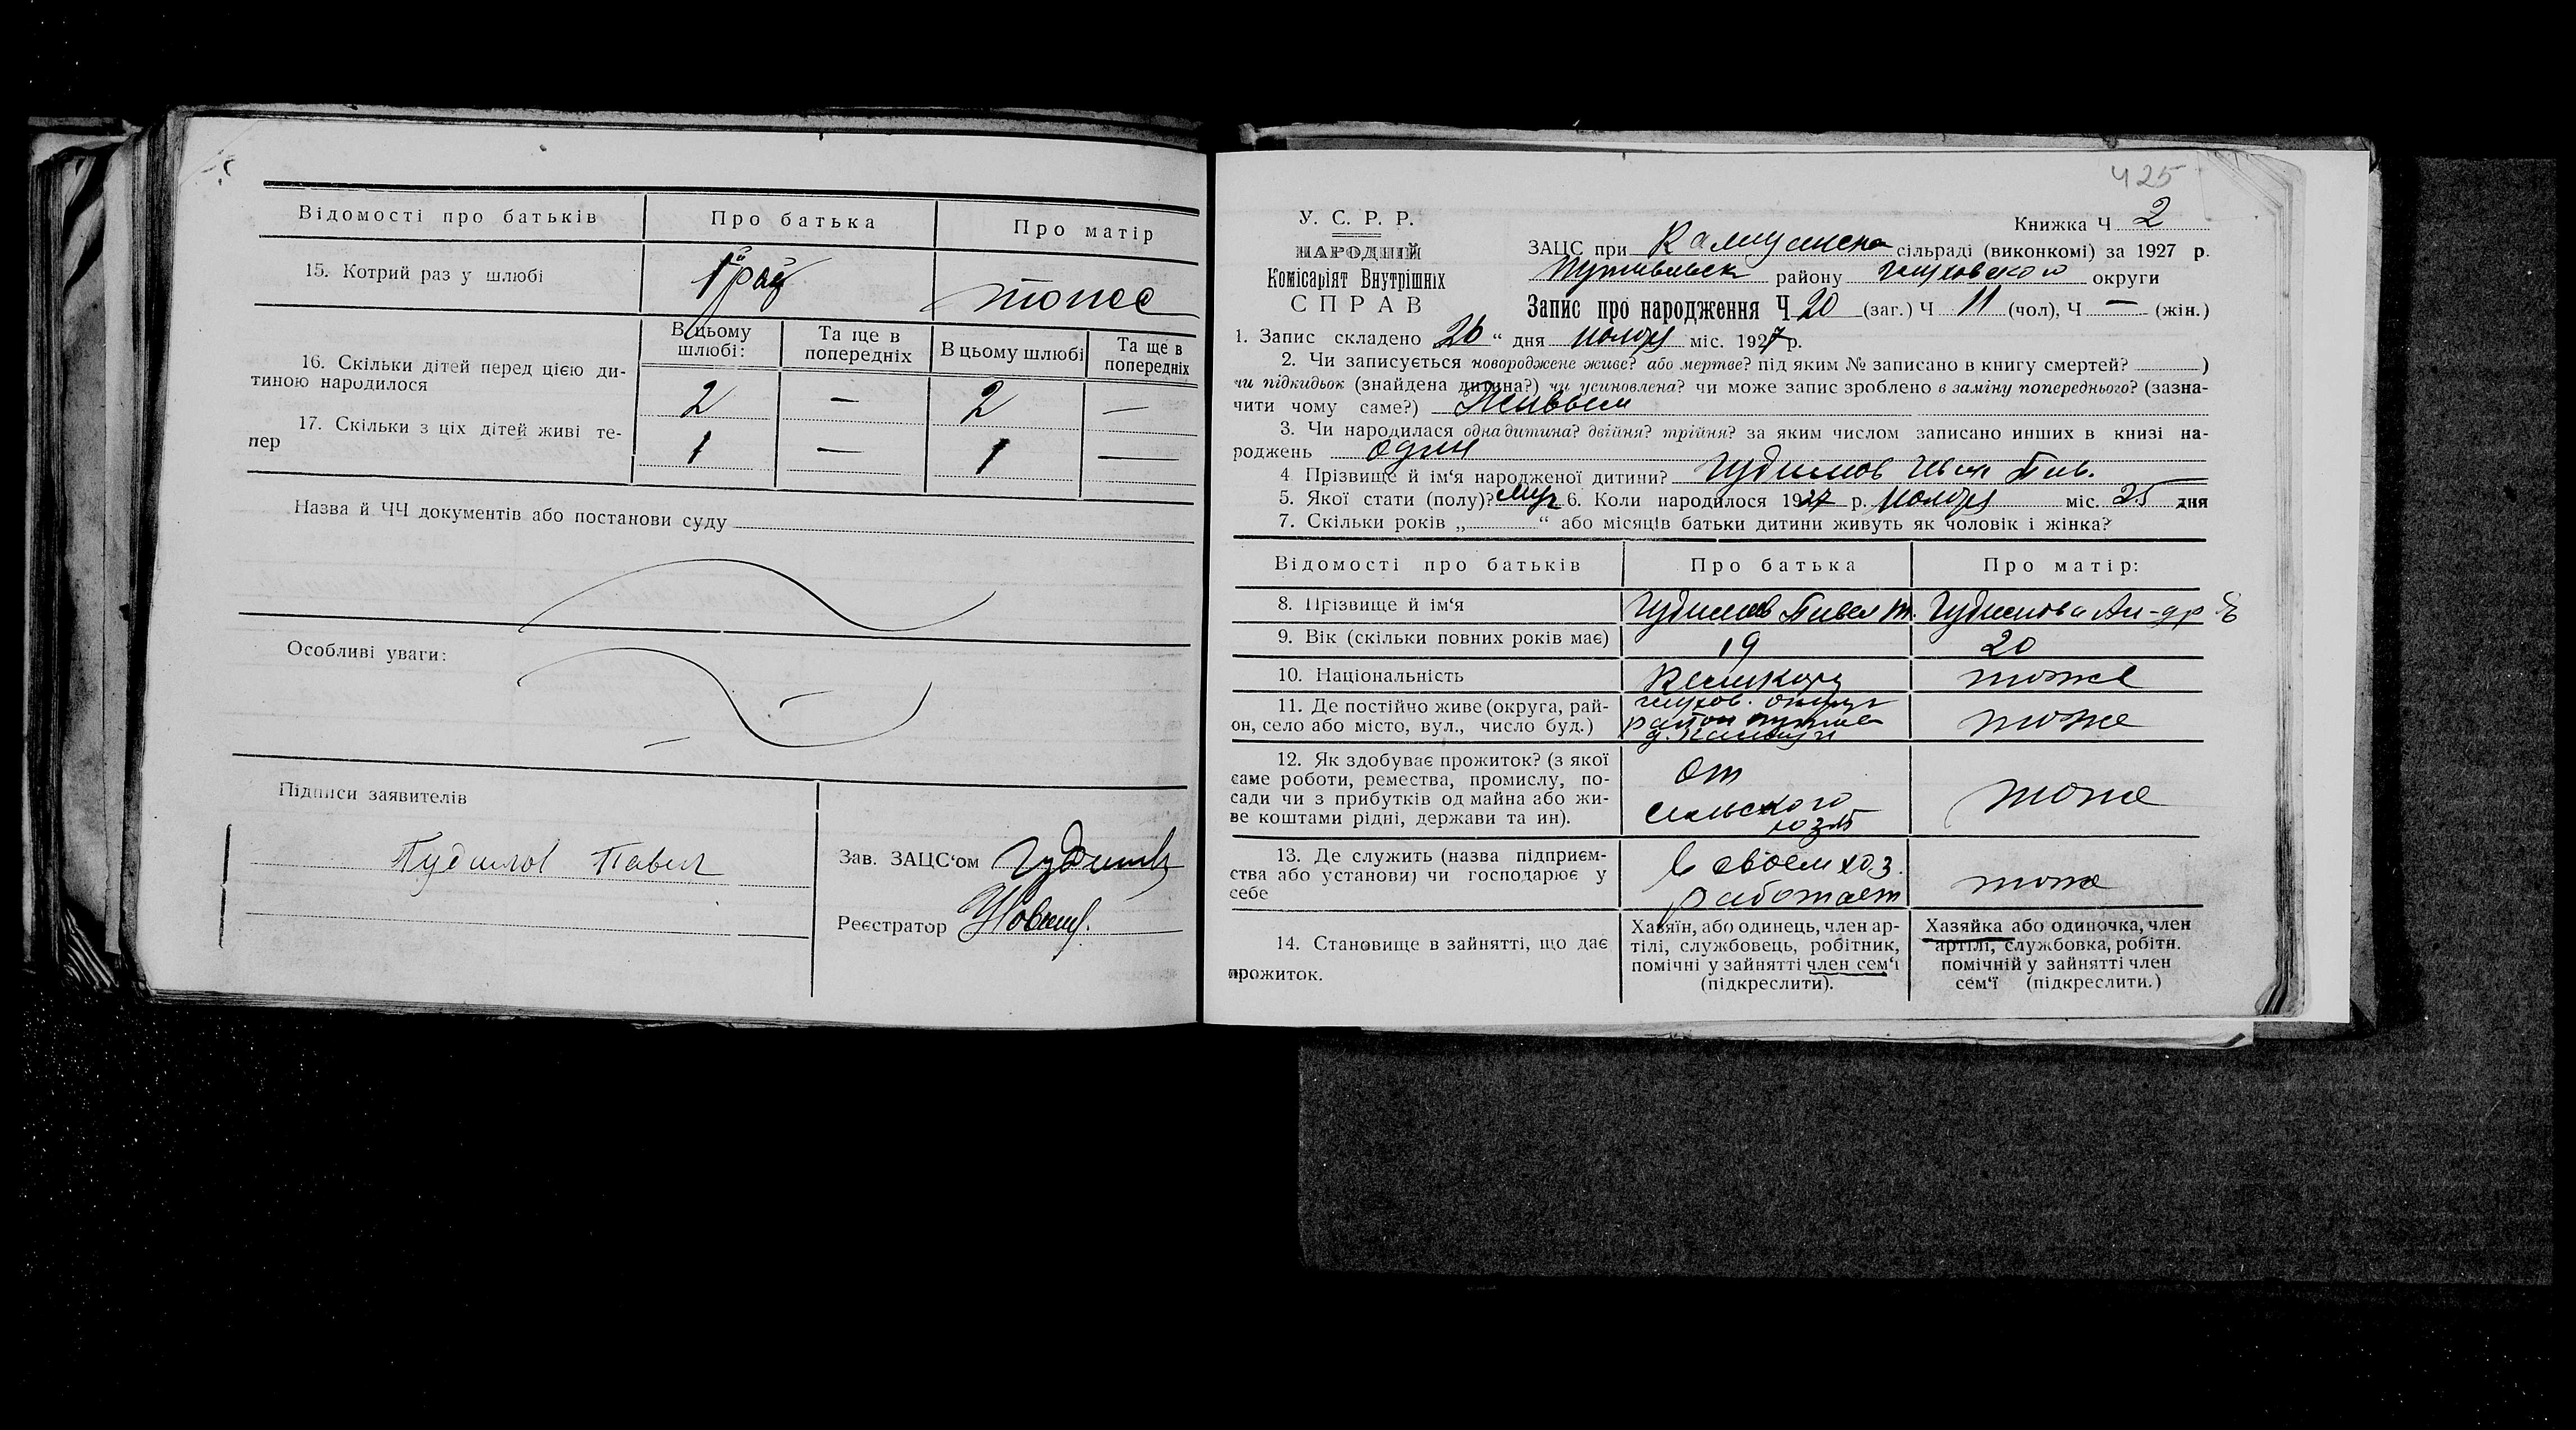 Відомості про батьків
Про батька
Про матір
15. Котрий раз у шлюбі
1й раз
тоже
16. Скільки дітей перед цією ди-
тиною народилося
В цьому
шлюбі:
Та ще в
попередніх
В цьому шлюбі
Та ще в
попередніх
2
—
2
—
17. Скільки з ціх дітей живі те-
пер
1
—
1
—
Назва й ЧЧ документів або постанови суду
Особливі уваги:
Підписи заявителів
Гудимов Павел
Зав. ЗАЦС'ом Гудимов
Реєстратор
425
У. С. Р. Р.
НАРОДНІЙ
Комісаріят Внутрішніх
СПРАВ
Книжка Ч 2
ЗАЦС при сільраді (виконкомі) за 1927 р.
Путивльск району Глуховского округи
Запис про народження Ч 20 (заг.) Ч 11 (чол), Ч — (жін.)
1. Запис складено 26 “ дня ноября міс. 1927 р.
2. Чи записується новороджене живе? або мертве? під яким № записано в книгу смертей? )
чи підкидьок (знайдена дитина?) чи усиновлена? чи може запис зроблено в заміну попереднього? (зазна-
чити чому саме?) Живым
3. Чи народилася одна дитина? двійня? трійня? за яким числом записано инших в книзі на-
роджень один
4 Прізвище й ім‘я народженої дитини? Гудимов Иван Пав.
5. Якої стати (полу)? муж 6. Коли народилося 1927 р. ноября міс. 25 дня
7. Скільки років „ “ або місяців батьки дитини живуть як чоловік і жінка?
Відомості про батьків
Про батька
Про матір:
8. Прізвище й ім‘я
Гудимов Павел Т.
Гудимова
9. Вік (скільки повних років має)
19
20
10. Національність
Великорус
тоже
11. Де постійно живе (округа, рай-
он, село або місто, вул., число буд.)
Глухов. округ
район
тоже
12. Як здобуває прожиток? (з якої
саме роботи, ремества, промислу, по-
сади чи з прибутків од майна або жи-
ве коштами рідні, держави та ин).
от
сельского
хозяй
тоже
13. Де служить (назва підприєм-
ства або установи) чи господарює у
себе
в своем хоз.
работает
тоже
14. Становище в зайнятті, що дає
прожиток.
Хазяїн, або одинець, член ар-
тілі, службовець, робітник,
помічні у зайнятті член сем‘ї
(підкреслити).
Хазяйка або одиночка, член
артілі, службовка, робітн.
помічній у зайнятті член
сем‘ї (підкреслити.)